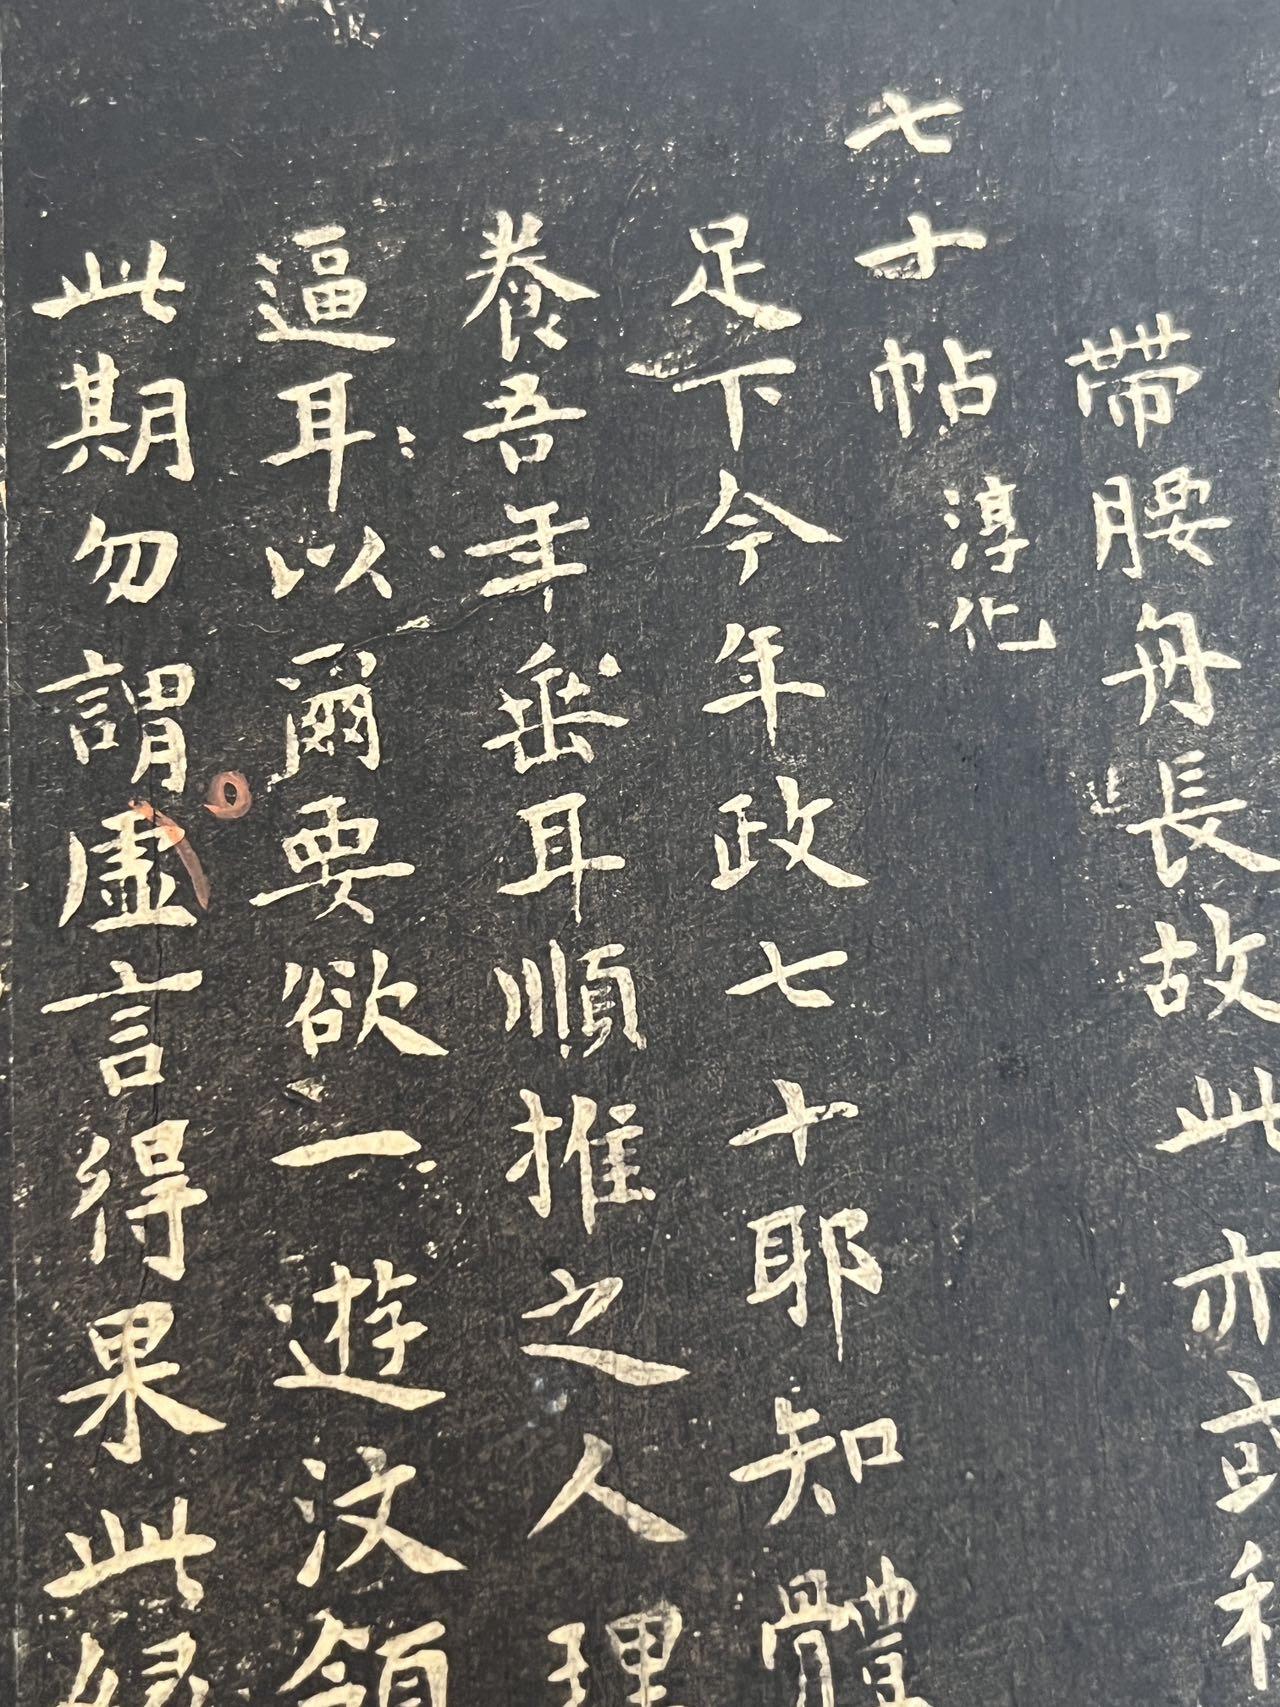 帶腰舟長故此亦或
七十帖淳化
足下今年政七十耶知體
養吾年垂耳順推之人理
逼耳以爾要欲一遊汶領
此期勿謂虛言得果此緣